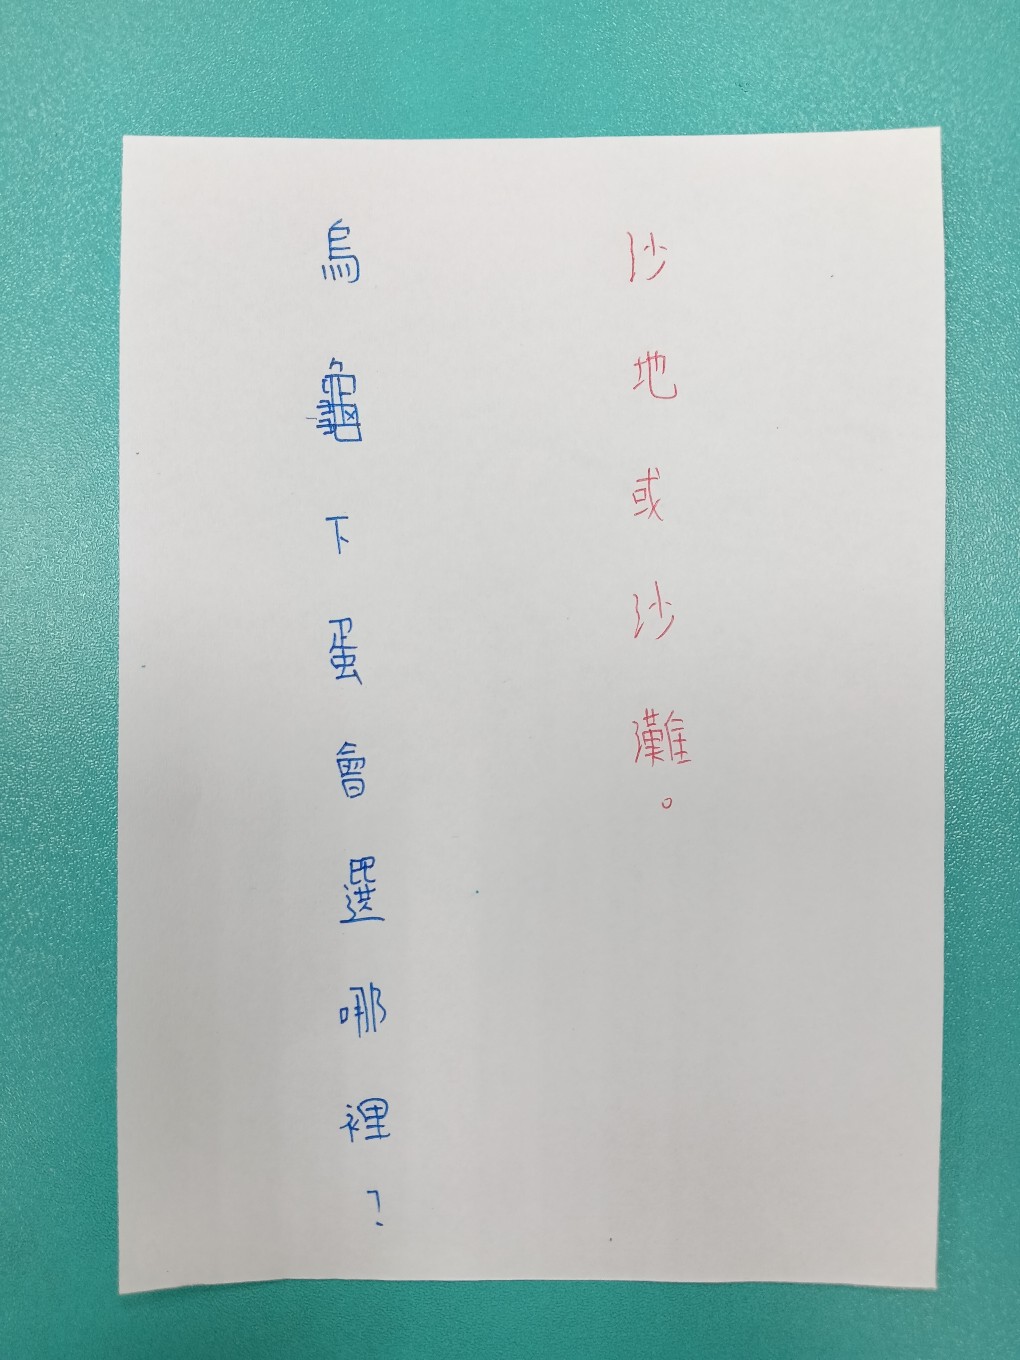 烏龜下蛋會選哪裡？
沙地或沙灘。